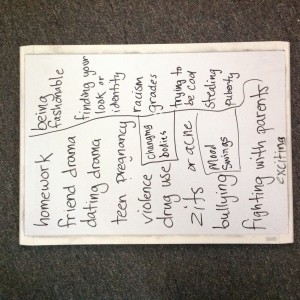 homework
friend drama
dating drama
teen pregnancy
violence
drug use
zits or acne
bullying
fighting with parents
exciting
changing
bodies
mood
swings
being
fashionable
finding your
look or
identity
racism
grades
trying to
be cool
stealing
puberty